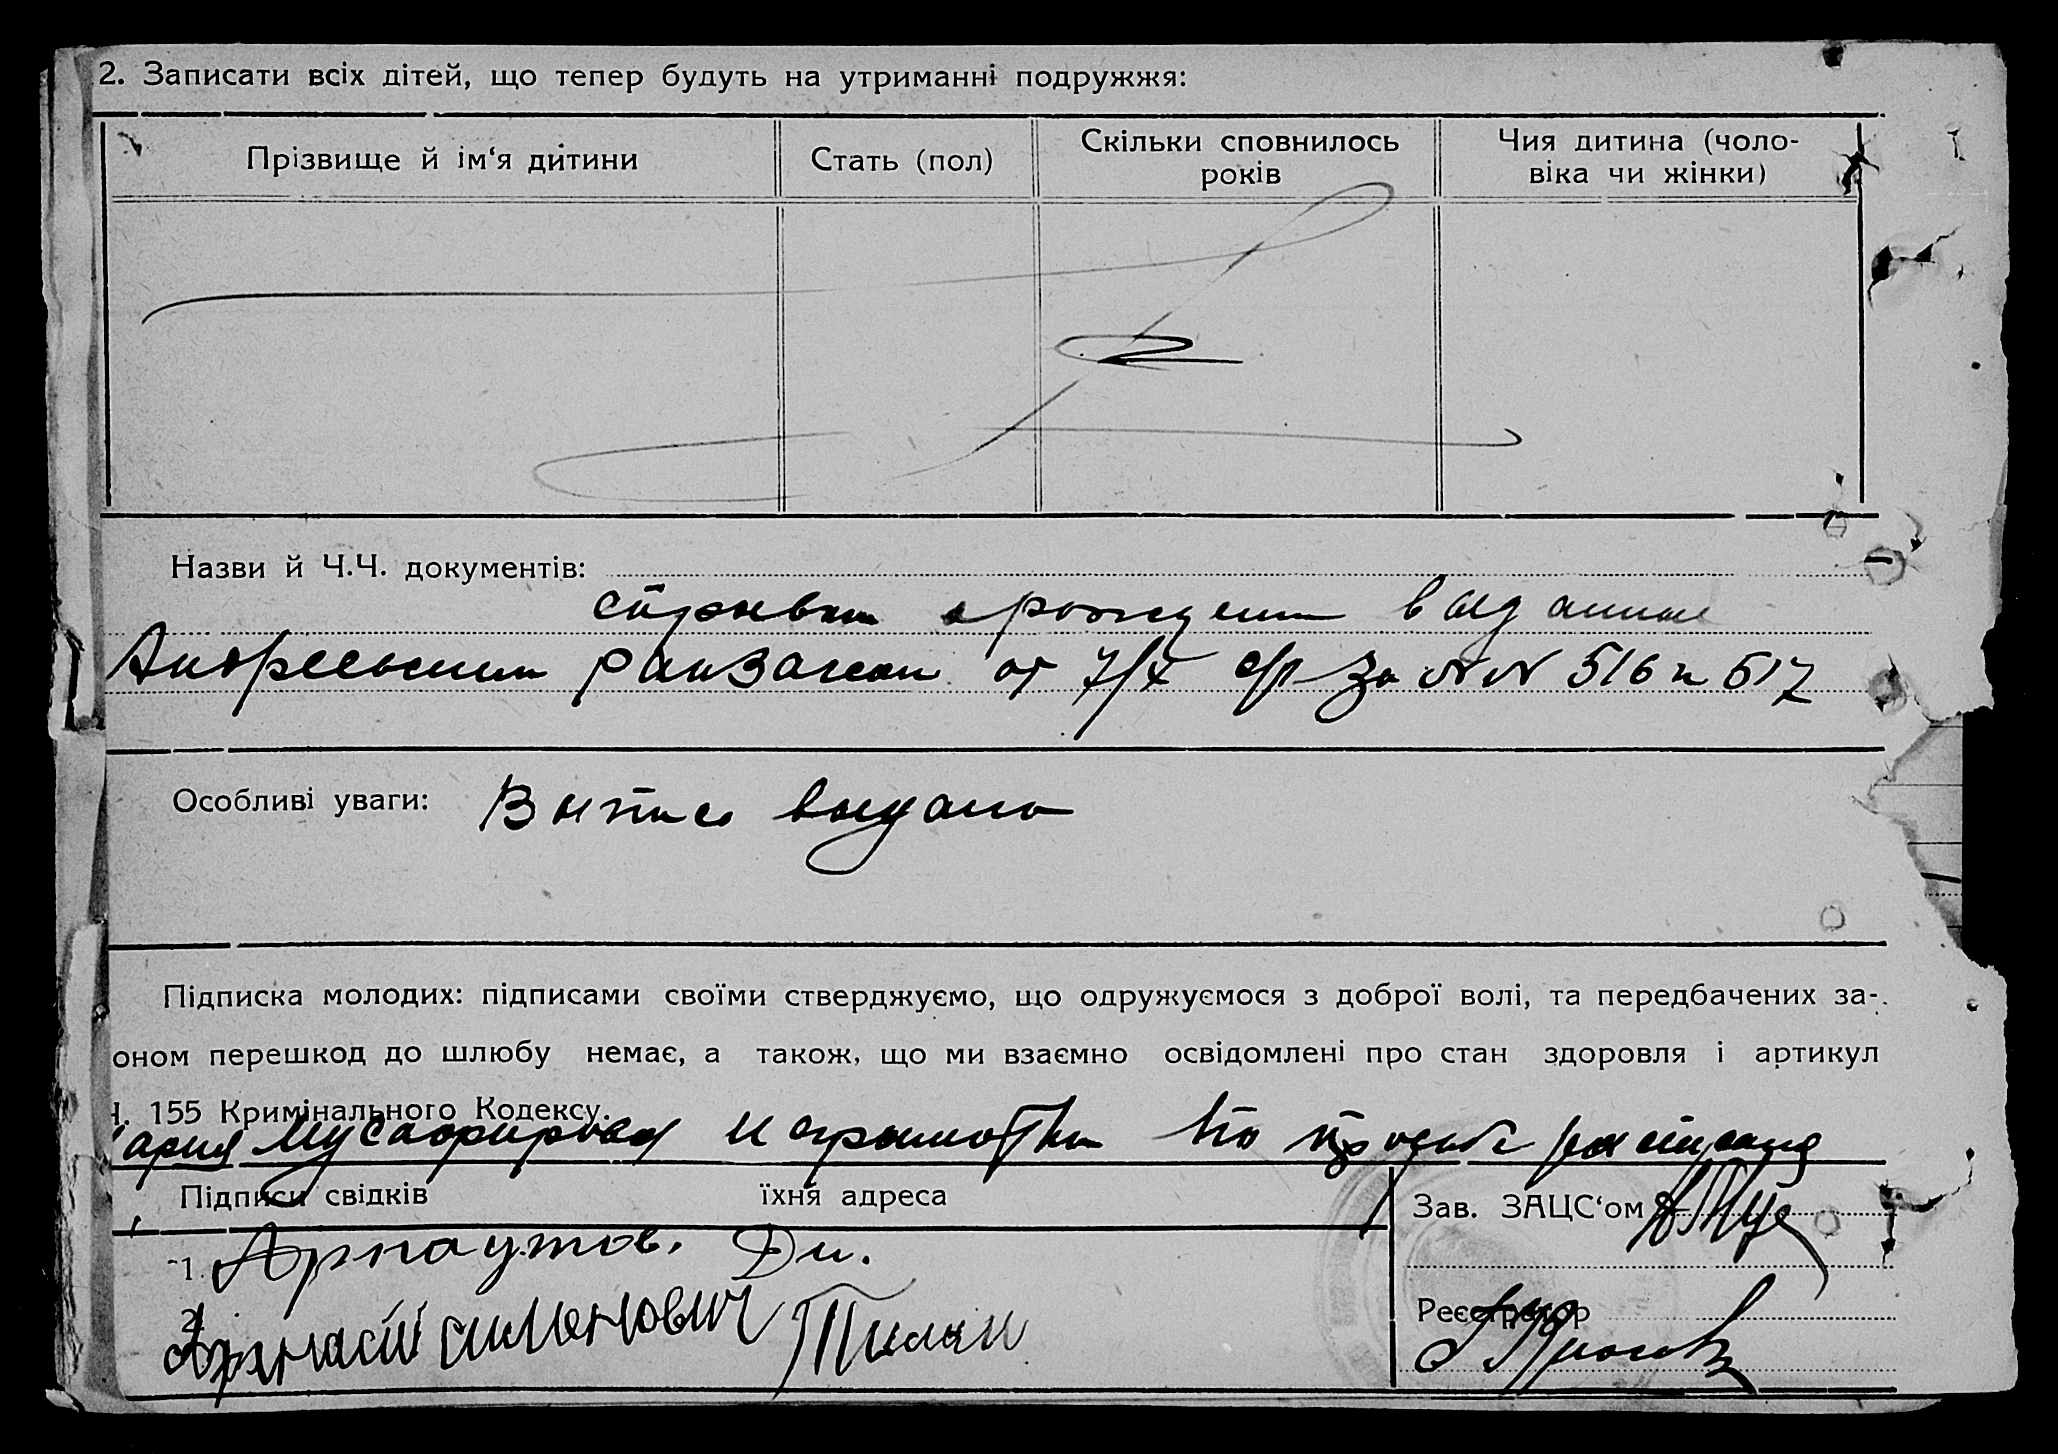 2. Записати всіх дітей, що тепер будуть на утриманні подружжя:
Прізвище й ім‘я дитини
Стать (пол)
Скільки сповнилось
років
Чия дитина (чоло-
віка чи жінки)
Назви й Ч.Ч. документів:
справки о рождении выданные
от 7/X с/г за №№ 516 и 517
Особливі уваги: Выпись выдана
Підписка молодих: підписами своїми стверджуємо, що одружуємося з доброї волі, та передбачених за-
оном перешкод до шлюбу немає, а також, що ми взаємно освідомлені про стан здоровля і артикул
Ч. 155 Кримінального Кодексу.
ария неграмотна по просьбе
Підписи свідків їхня адреса
Зав. ЗАЦС‘ом
1. Арнаутов. Дм.
Реєстратор
2. Афанасий силенович